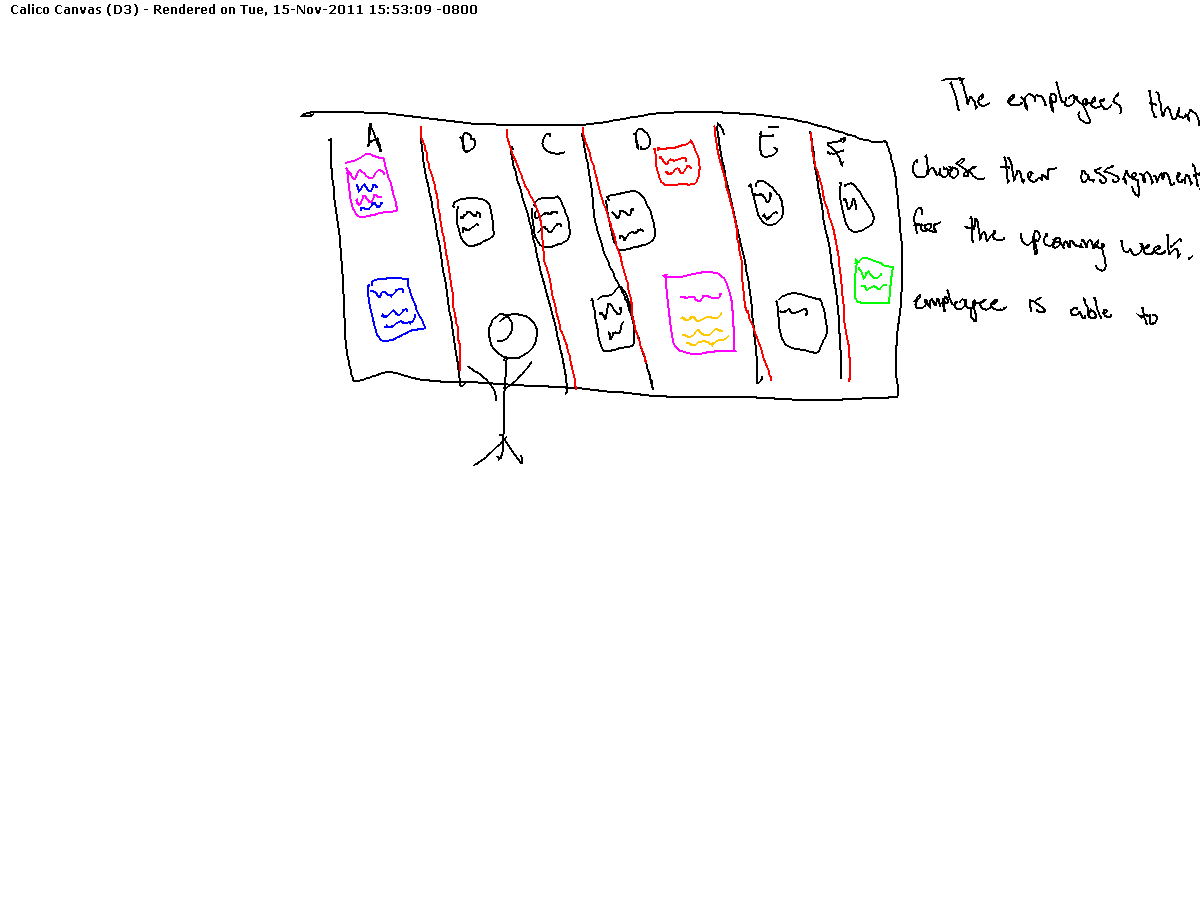 Calico Canvas (D3) - Rendered on Tue, 15-Nov-2011 15:53:09 -0800
A B C D E F
The employees then
choose their assignment
for the upcoming week.
employee is able to